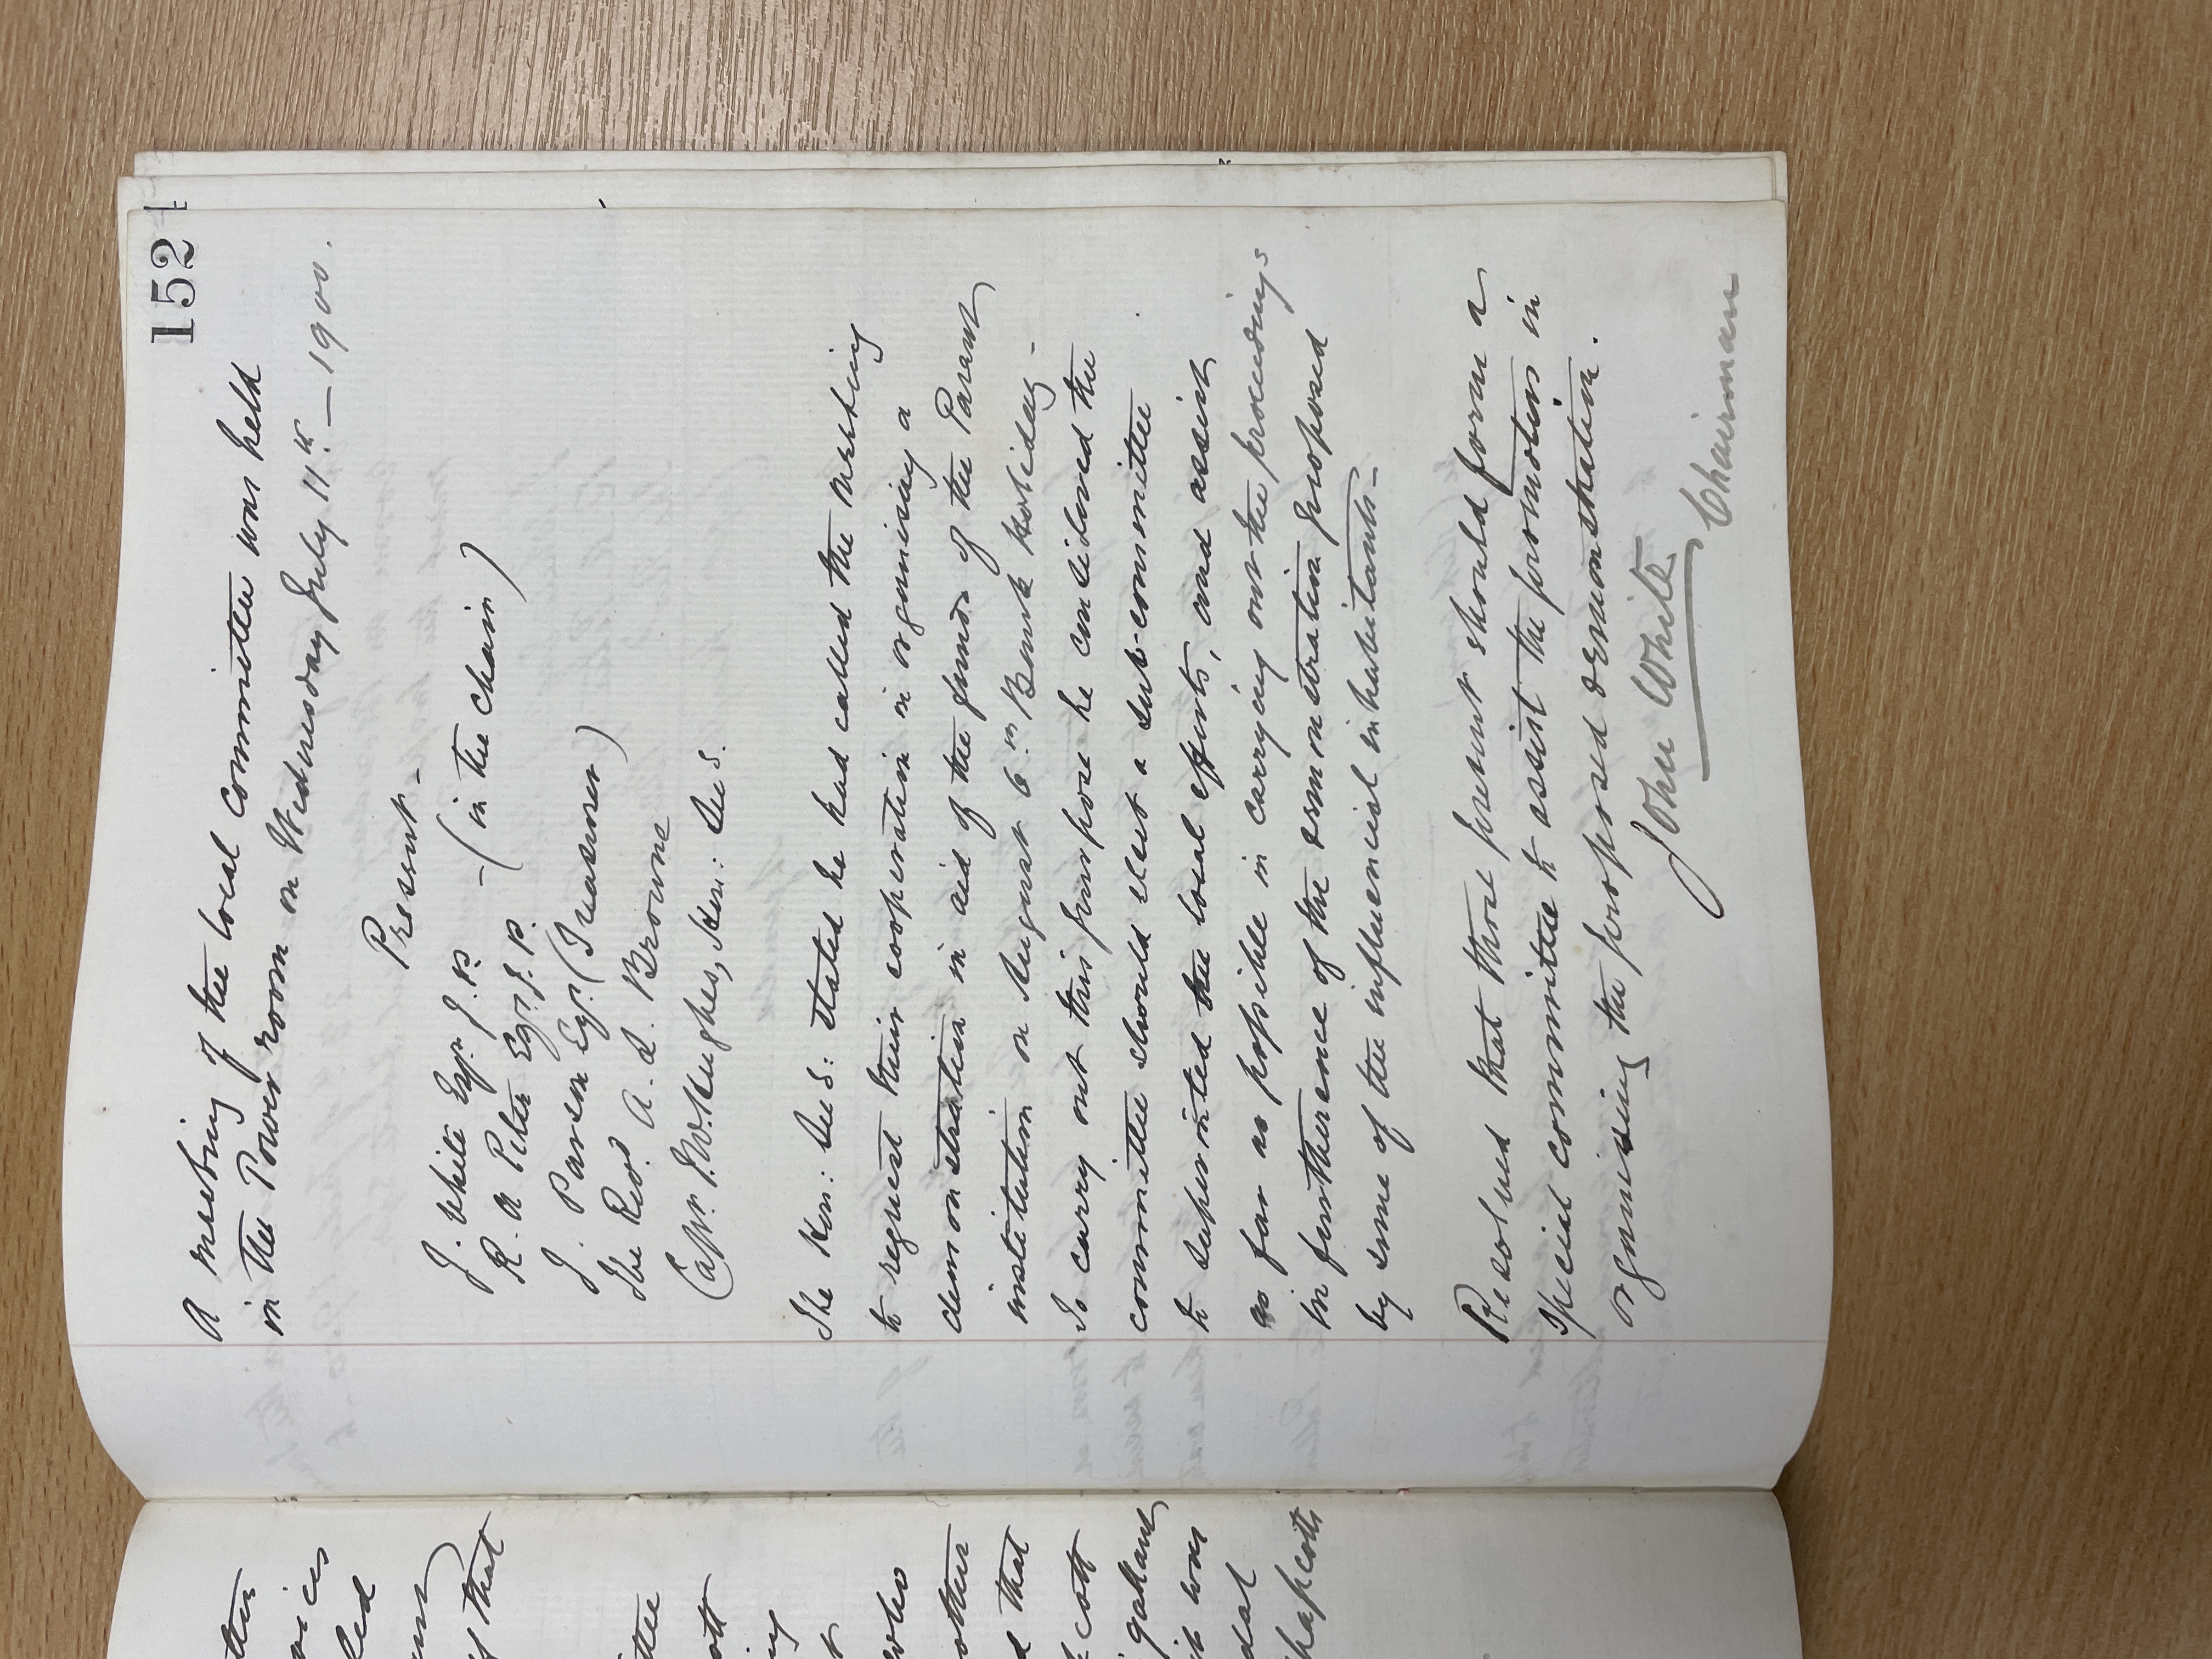 152
A meeting of the local committee was held
in the Power room on Wednesday July 11th — 1900.
Present -
J. White Esqr. J.P. - (in the chair)
R. A Peter Esqr. J.P.
J. Parson Esqr. (Treasurer)
The Revd. A. L. Browne
Capt. Hughes, Hon: Sec S.
The Hon: Sec S: stated he had called the meeting
to request their cooperation in organising a
demonstration in aid of the funds of the Parent
institution on August 6th Bank Holiday -
To carry out this purpose he considered the
committee should elect a sub-committee
to superinted the local efforts, and assist
as far as possible in carrying out the proceedings
in furtherence of the demonstration proposed
by some of the influencial inhabitants -
Resolved that those present should form a
special committee to assist the promotion in
organising the proposed demonstration.
John White
Chairman
ott
who
other
d that
cott
dal